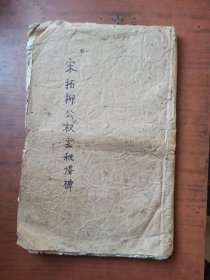 宋拓柳公权玄秘塔碑